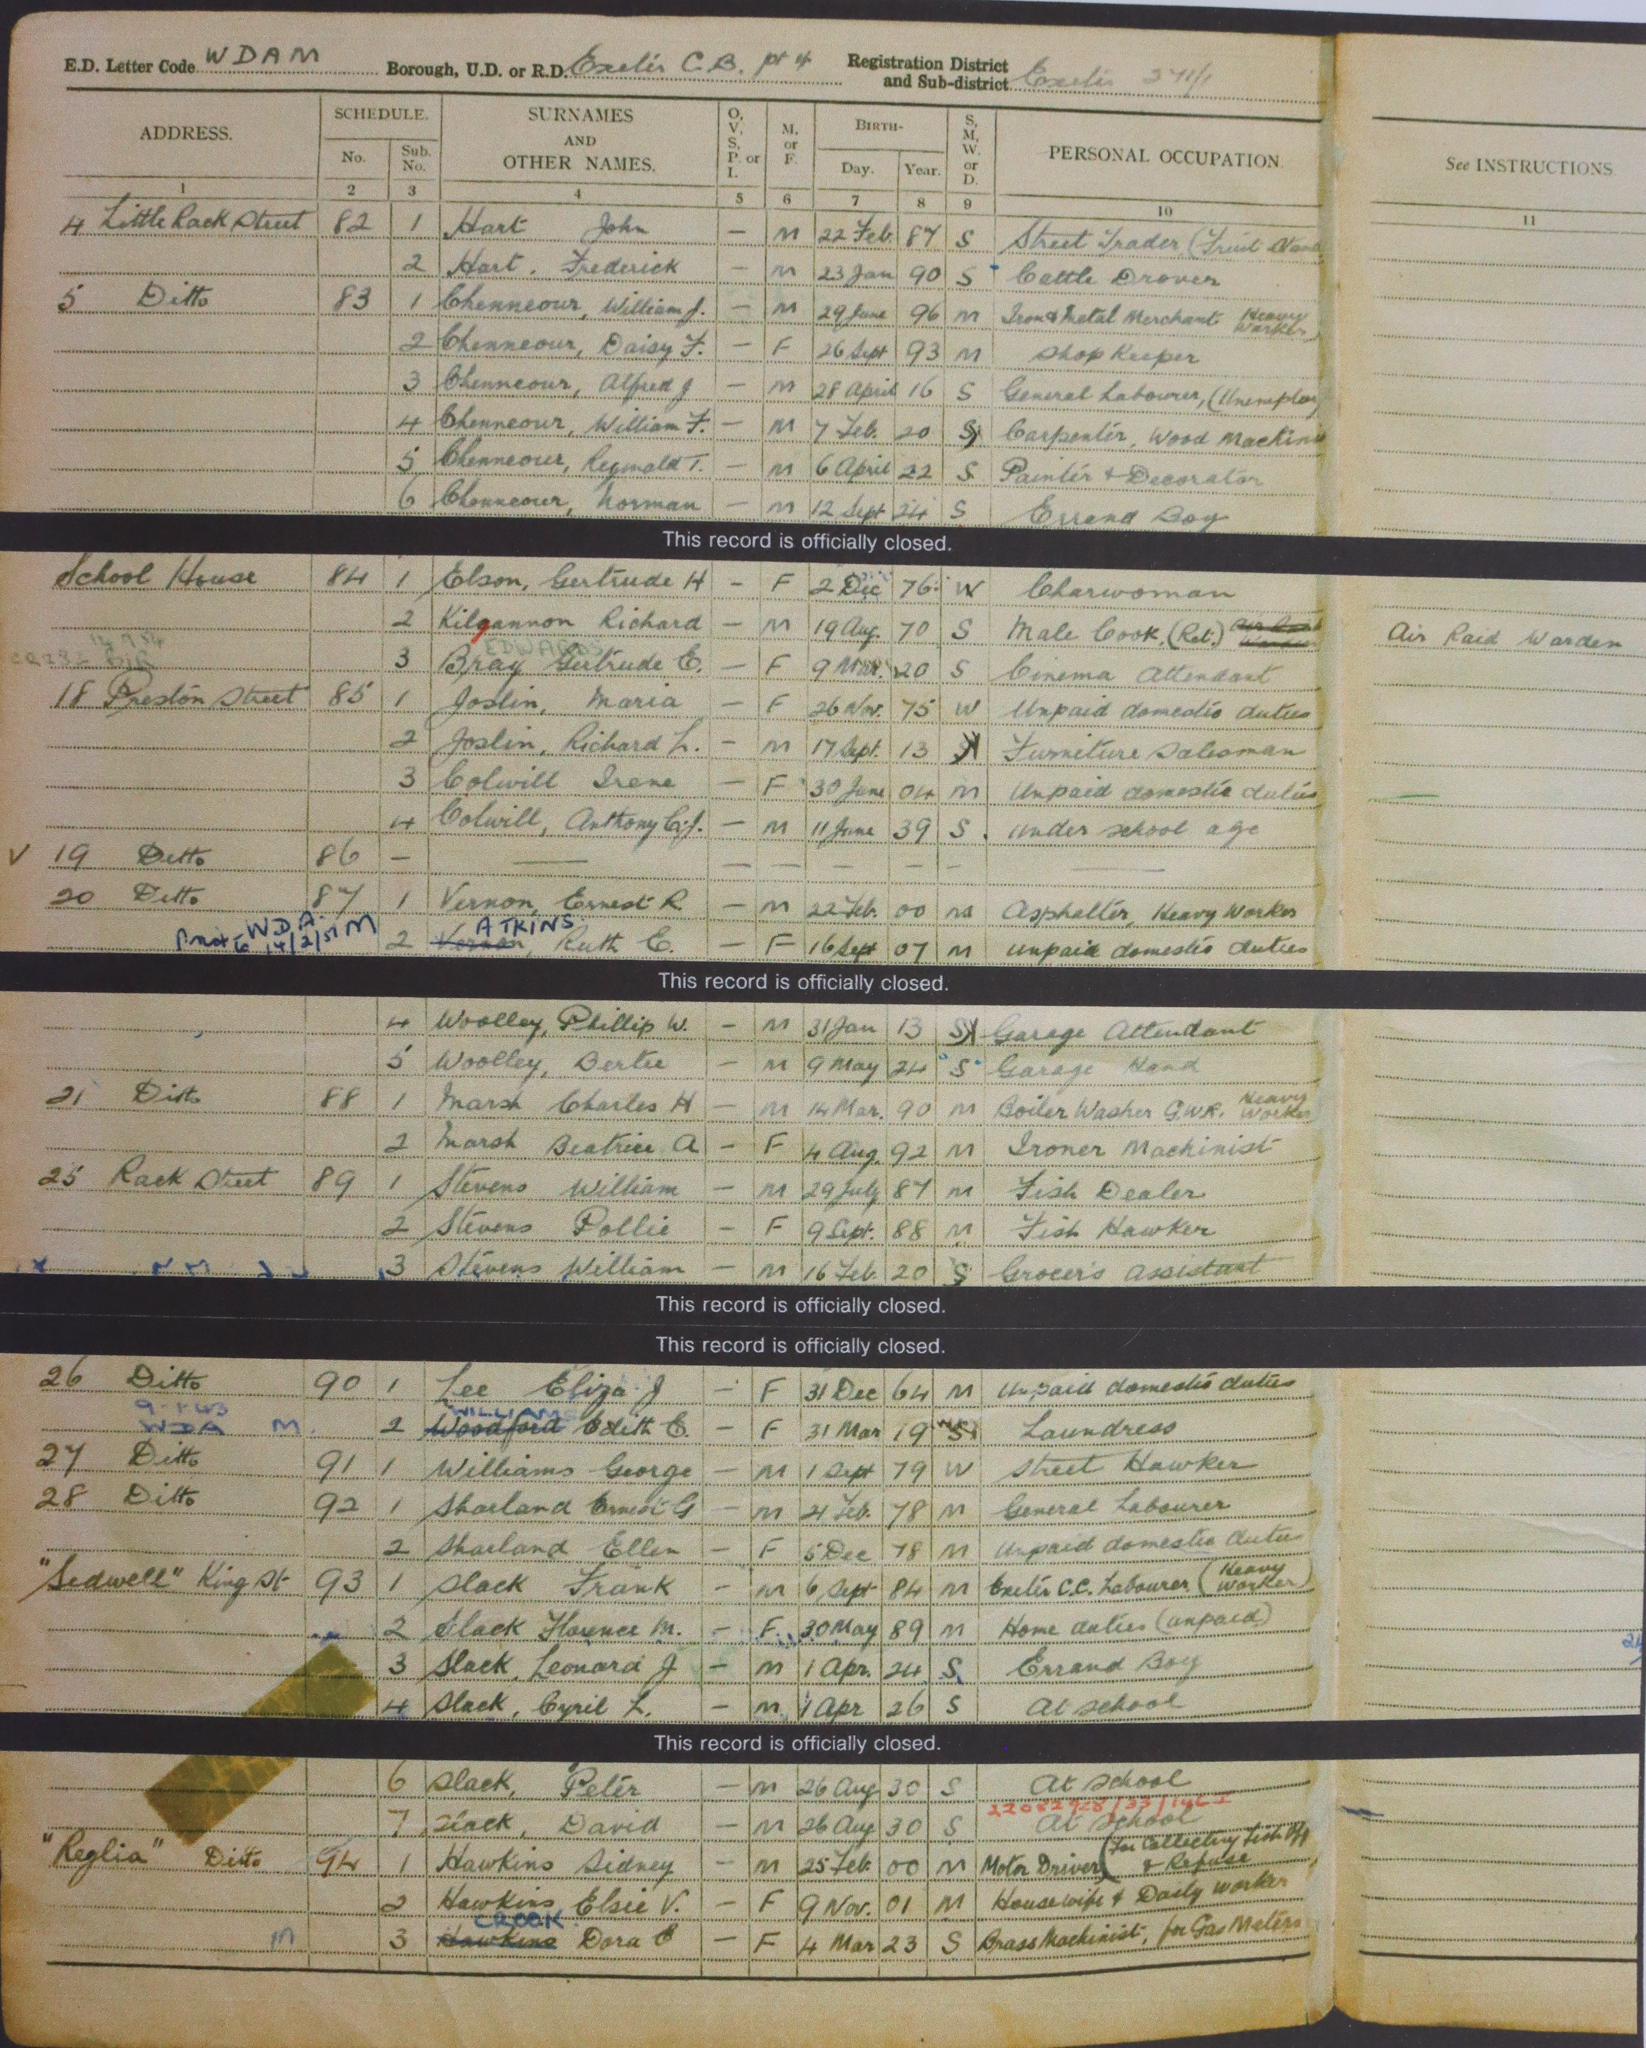 E.D. Letter Code WDAM Borough, U.D. or R.D. Exeter C.B. pt 4 Registration District and Sub-district Exeter
ADDRESS. SCHEDULE. No. Sub. No. SURNAMES AND OTHER NAMES. O, V, S, P. or I. M. or F. BIRTH- Day. Year. S, M, W. or D. PERSONAL OCCUPATION. See INSTRUCTIONS
1 2 3 4 5 6 7 8 9 10 11
4 Little Rack Street 82 1 Hart John — M 22 Feb. 87 S Street Trader, (Fruit
2 Hart, Frederick — M 23 Jan 90 S Cattle Drover
5 Ditto 83 1 Chenneour, William J. — M 29 June 96 M Iron & Metal Merchant Heavy Worker
2 Chenneour, Daisy F. — F 26 Sept 93 M Shop Keeper
3 Chenneour, Alfred J — M 28 April 16 S General Labourer, (Unemploy
4 Chenneour, William F. — M 7 Feb. 20 S Carpenter, Wood Machinis
5 Chenneour, Reginald T. — M 6 April 22 S Painter & Decorator
6 Chenneour, Norman — M 12 Sept 24 S Errand Boy
This record is officially closed.
School House 84 1 Elson, Gertrude H — F 2 Dec 76 W Charwoman
2 Kilgannon Richard — M 19 Aug. 70 S Male Cook, (Ret.) Air Raid Warden
EDWARDS
3 Bray Gertrude E. — F 9 Mar. 20 S Cinema Attendant
18 Preston Street 85 1 Joslin, Maria — F 26 Nov. 75 W Unpaid domestic duties
2 Joslin, Richard L. — M 17 Sept. 13 Furniture Salesman
3 Colwill Irene — F 30 June 04 M Unpaid domestic duties
4 Colwill, Anthony C.J. — M 11 June 39 S. Under school age
V 19 Ditto 86 — — — — — — —
20 Ditto 87 1 Vernon, Ernest R — M 22 Feb. 00 M Asphalter, Heavy Worker
W.D.A. M ATKINS
14/2/51 2 Vernon, Ruth E. — F 16 Sept 07 M Unpaid domestic duties
This record is officially closed.
4 Woolley, Phillip W. — M 31 Jan 13 S Garage Attendant
5 Woolley, Bertie — M 9 May 24 S Garage Hand
21 Ditto 88 1 Marsh Charles H — M 14 Mar. 90 M Boiler Washer G.W.R. Heavy Worker
2 Marsh Beatrice A — F 4 Aug. 92 M Ironer Machinist
25 Rack Street 89 1 Stevens William — M 29 July 87 M Fish Dealer
2 Stevens Pollie — F 9 Sept. 88 M Fish Hawker
3 Stevens William — M 16 Feb. 20 S Grocer's Assistant
This record is officially closed.
This record is officially closed.
26 Ditto 90 1 Lee Eliza J — F 31 Dec 64 M Unpaid domestic duties
9.1.43 WILLIAMS
WDA M. 2 Woodford Edith E. — F 31 Mar 19 S Laundress
27 Ditto 91 1 Williams George — M 1 Sept 79 W Street Hawker
28 Ditto 92 1 Sharland Ernest G — M 21 Feb. 78 M General Labourer
2 Sharland Ellen — F 5 Dec 78 M Unpaid domestic duties
"Sidwell" King St 93 1 Slack Frank — M 6 Sept 84 M Exeter C.C. Labourer (Heavy Worker)
2 Slack Florence M. — F. 30 May 89 M Home duties (unpaid)
3 Slack, Leonard J — M 1 Apr. 24 S. Errand Boy
4 Slack, Cyril L. — M 1 Apr 26 S At School
This record is officially closed.
6 Slack, Peter — M 26 Aug 30 S At School
7 Slack, David — M 26 Aug 30 S At School
"Reglia" Ditto 94 1 Hawkins Sidney — M 25 Feb. 00 M Motor Driver (for Collecting Fish & Refuse
2 Hawkins Elsie V. — F 9 Nov. 01 M Housewife & Daily Worker
CROOK
M 3 Hawkins Dora E — F 4 Mar 23 S Brass Machinist, for Gas Meters